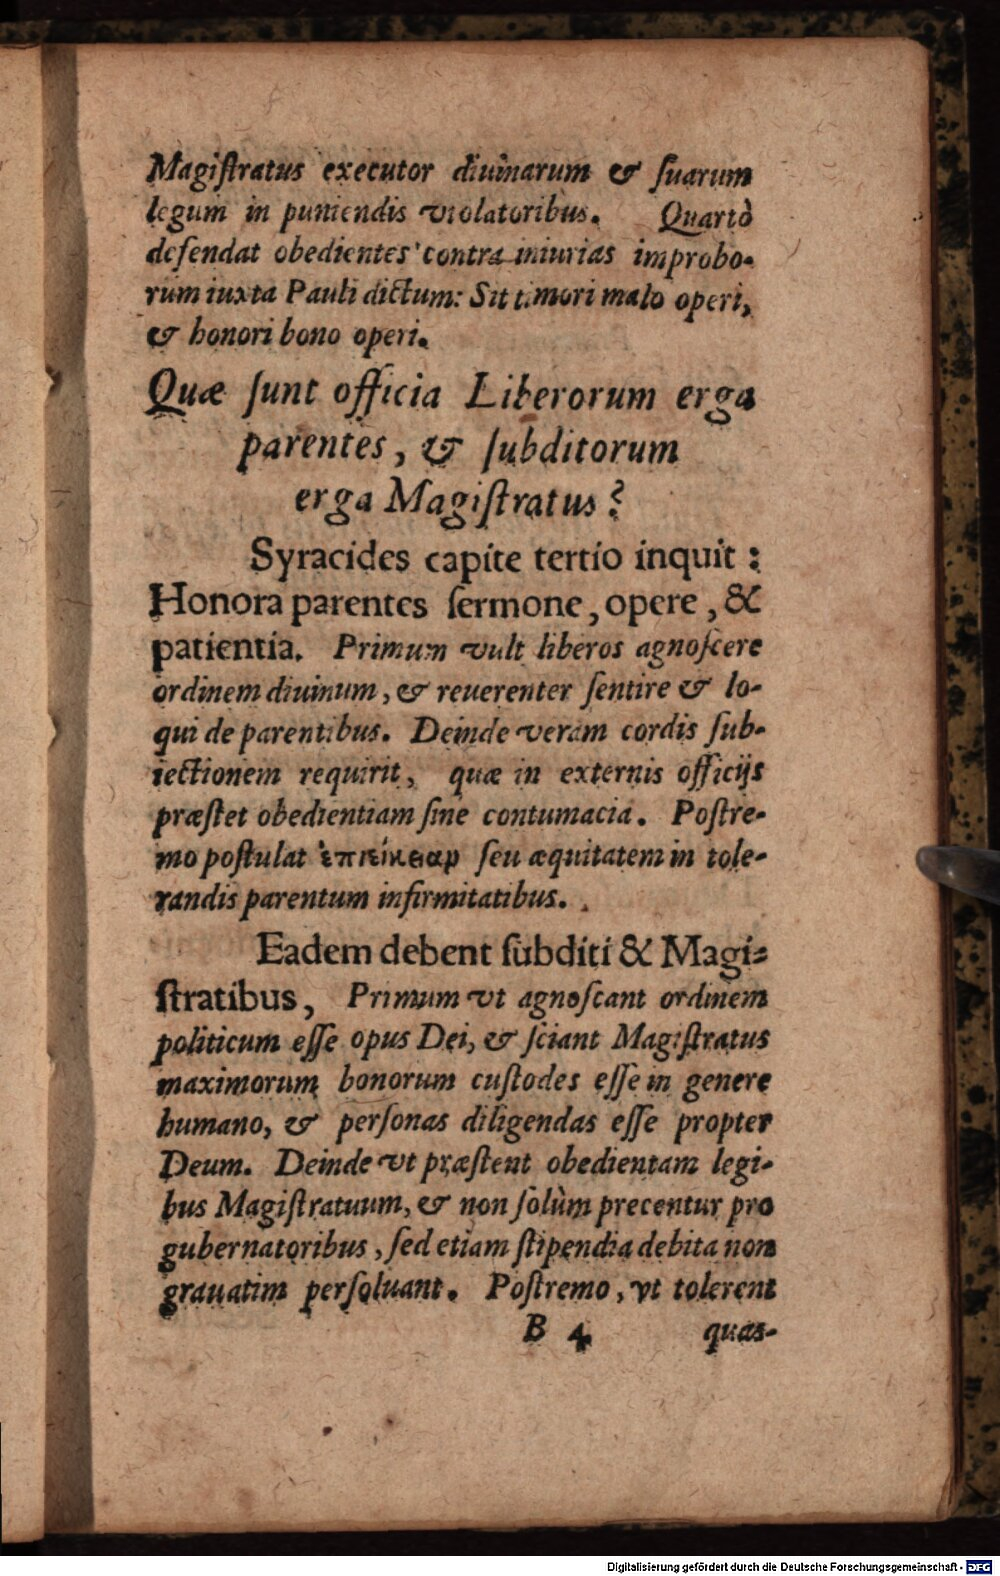 Magiſtratus executor diuinarum & ſuarum
legum in puniendis violatoribus. Quartò
defendat obedientes contra iniurias improbo-
rum iuxta Pauli dictum: Sit timori malo operi,
& honori bono operi.
Quæ ſunt officia Liberorum erga
parentes, & ſubditorum
erga Magiſtratus?
Syracides capite tertio inquit:
Honora parentes ſermone, opere, &
patientia. Primum vult liberos agnoſcere
ordinem diuinum, & reuerenter ſentire & lo-
qui de parentibus. Deinde veram cordis ſub-
iectionem requirit, quæ in externis officijs
præſtet obedientiam ſine contumacia. Poſtre-
mo poſtulat ἐπιείκειαρ ſeu æquitatem in tole-
randis parentum infirmitatibus.
Eadem debent ſubditi & Magi-
ſtratibus, Primum vt agnoſcant ordinem
politicum eſſe opus Dei, & ſciant Magiſtratus
maximorum bonorum cuſtodes eſſe in genere
humano, & perſonas diligendas eſſe propter
Deum. Deinde vt præſtent obedientam legi-
bus Magiſtratuum, & non ſolùm precentur pro
gubernatoribus, ſed etiam ſtipendia debita non
grauatim perſoluant. Poſtremo, vt tolerent
B 4 quas-
Digitalisierung gefördert durch die Deutsche Forschungsgemeinschaft - DFG